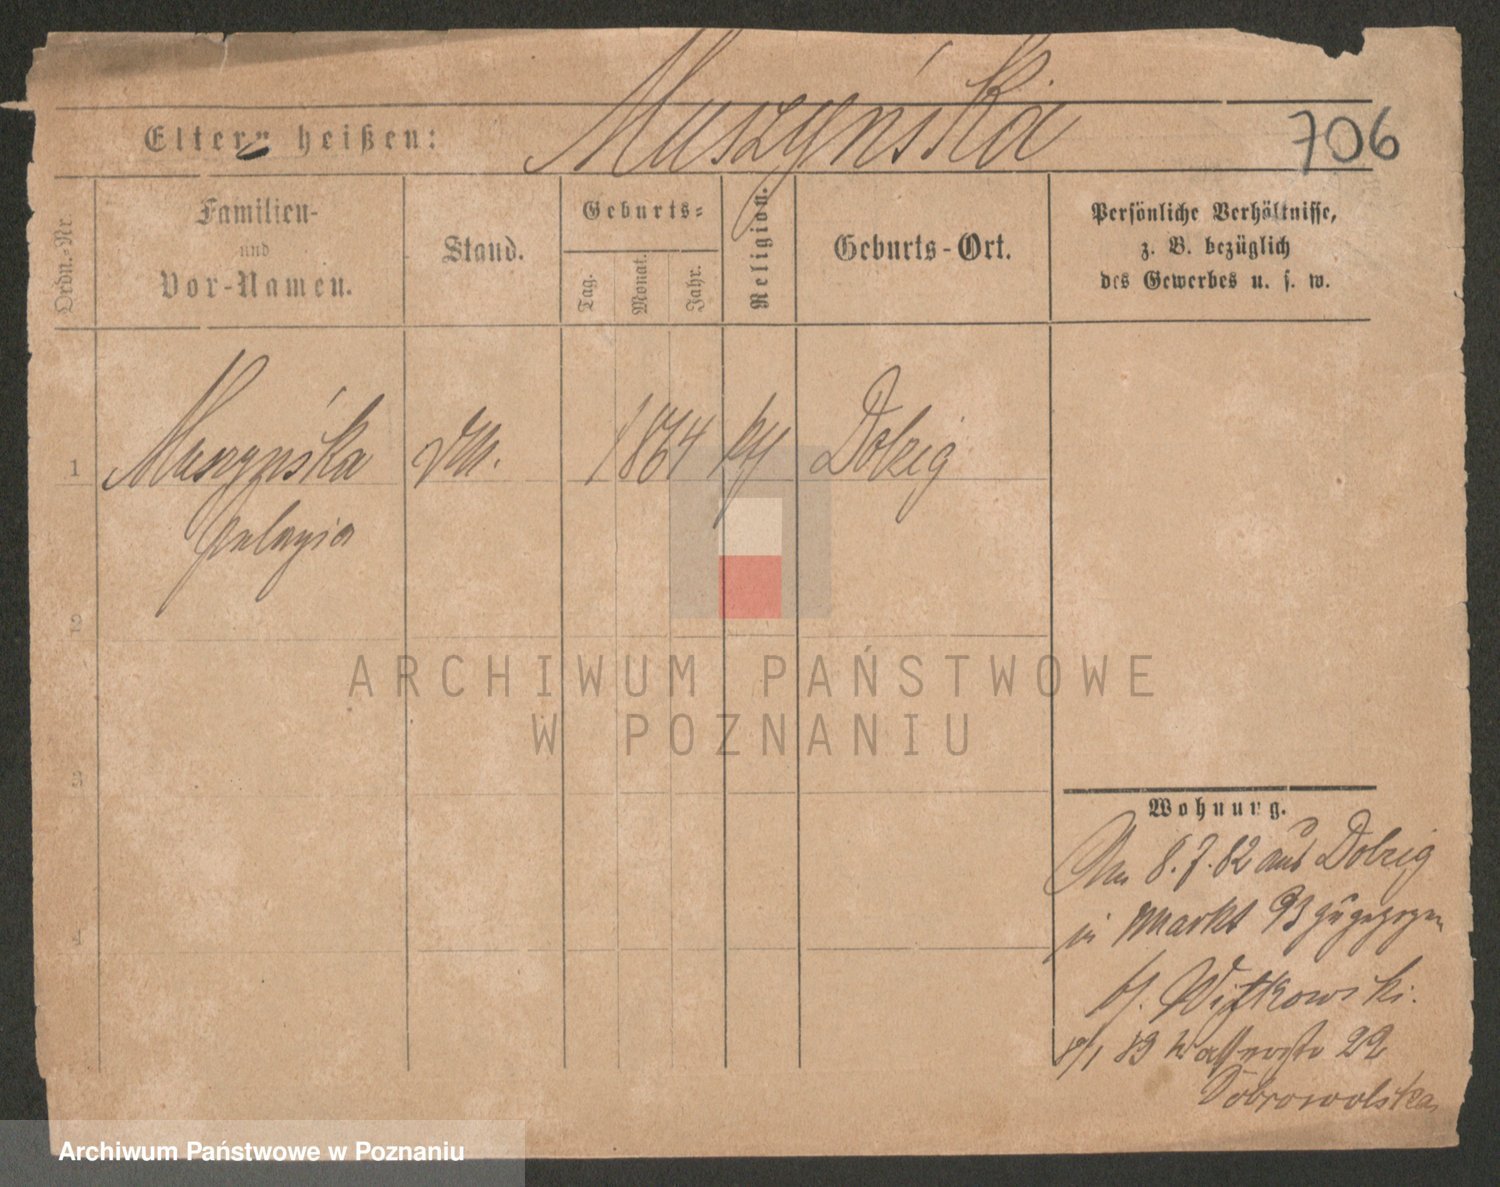 Muszyńska
Eltern heißen:
706
Ordn.-Nr.
Familien-
und
Vor-Namen.
Stand.
Geburts-
Tag.
Monat.
Jahr.
Religion.
Geburts-Ort.
Persönliche Verhältnisse,
z. B. bezüglich
des Gewerbes u. s. w.
1
Muszyńska
Pelagia
1864
Dolzig
2
3
4
Wohnung.
Am 8.7.82 aus Dolzig
in Markt 93 zugezogen
bj. Witkowski.
83 Wasserstr 22
Dobrowolska
ARCHIWUM PAŃSTWOWE
W POZNANIU
Archiwum Państwowe w Poznaniu